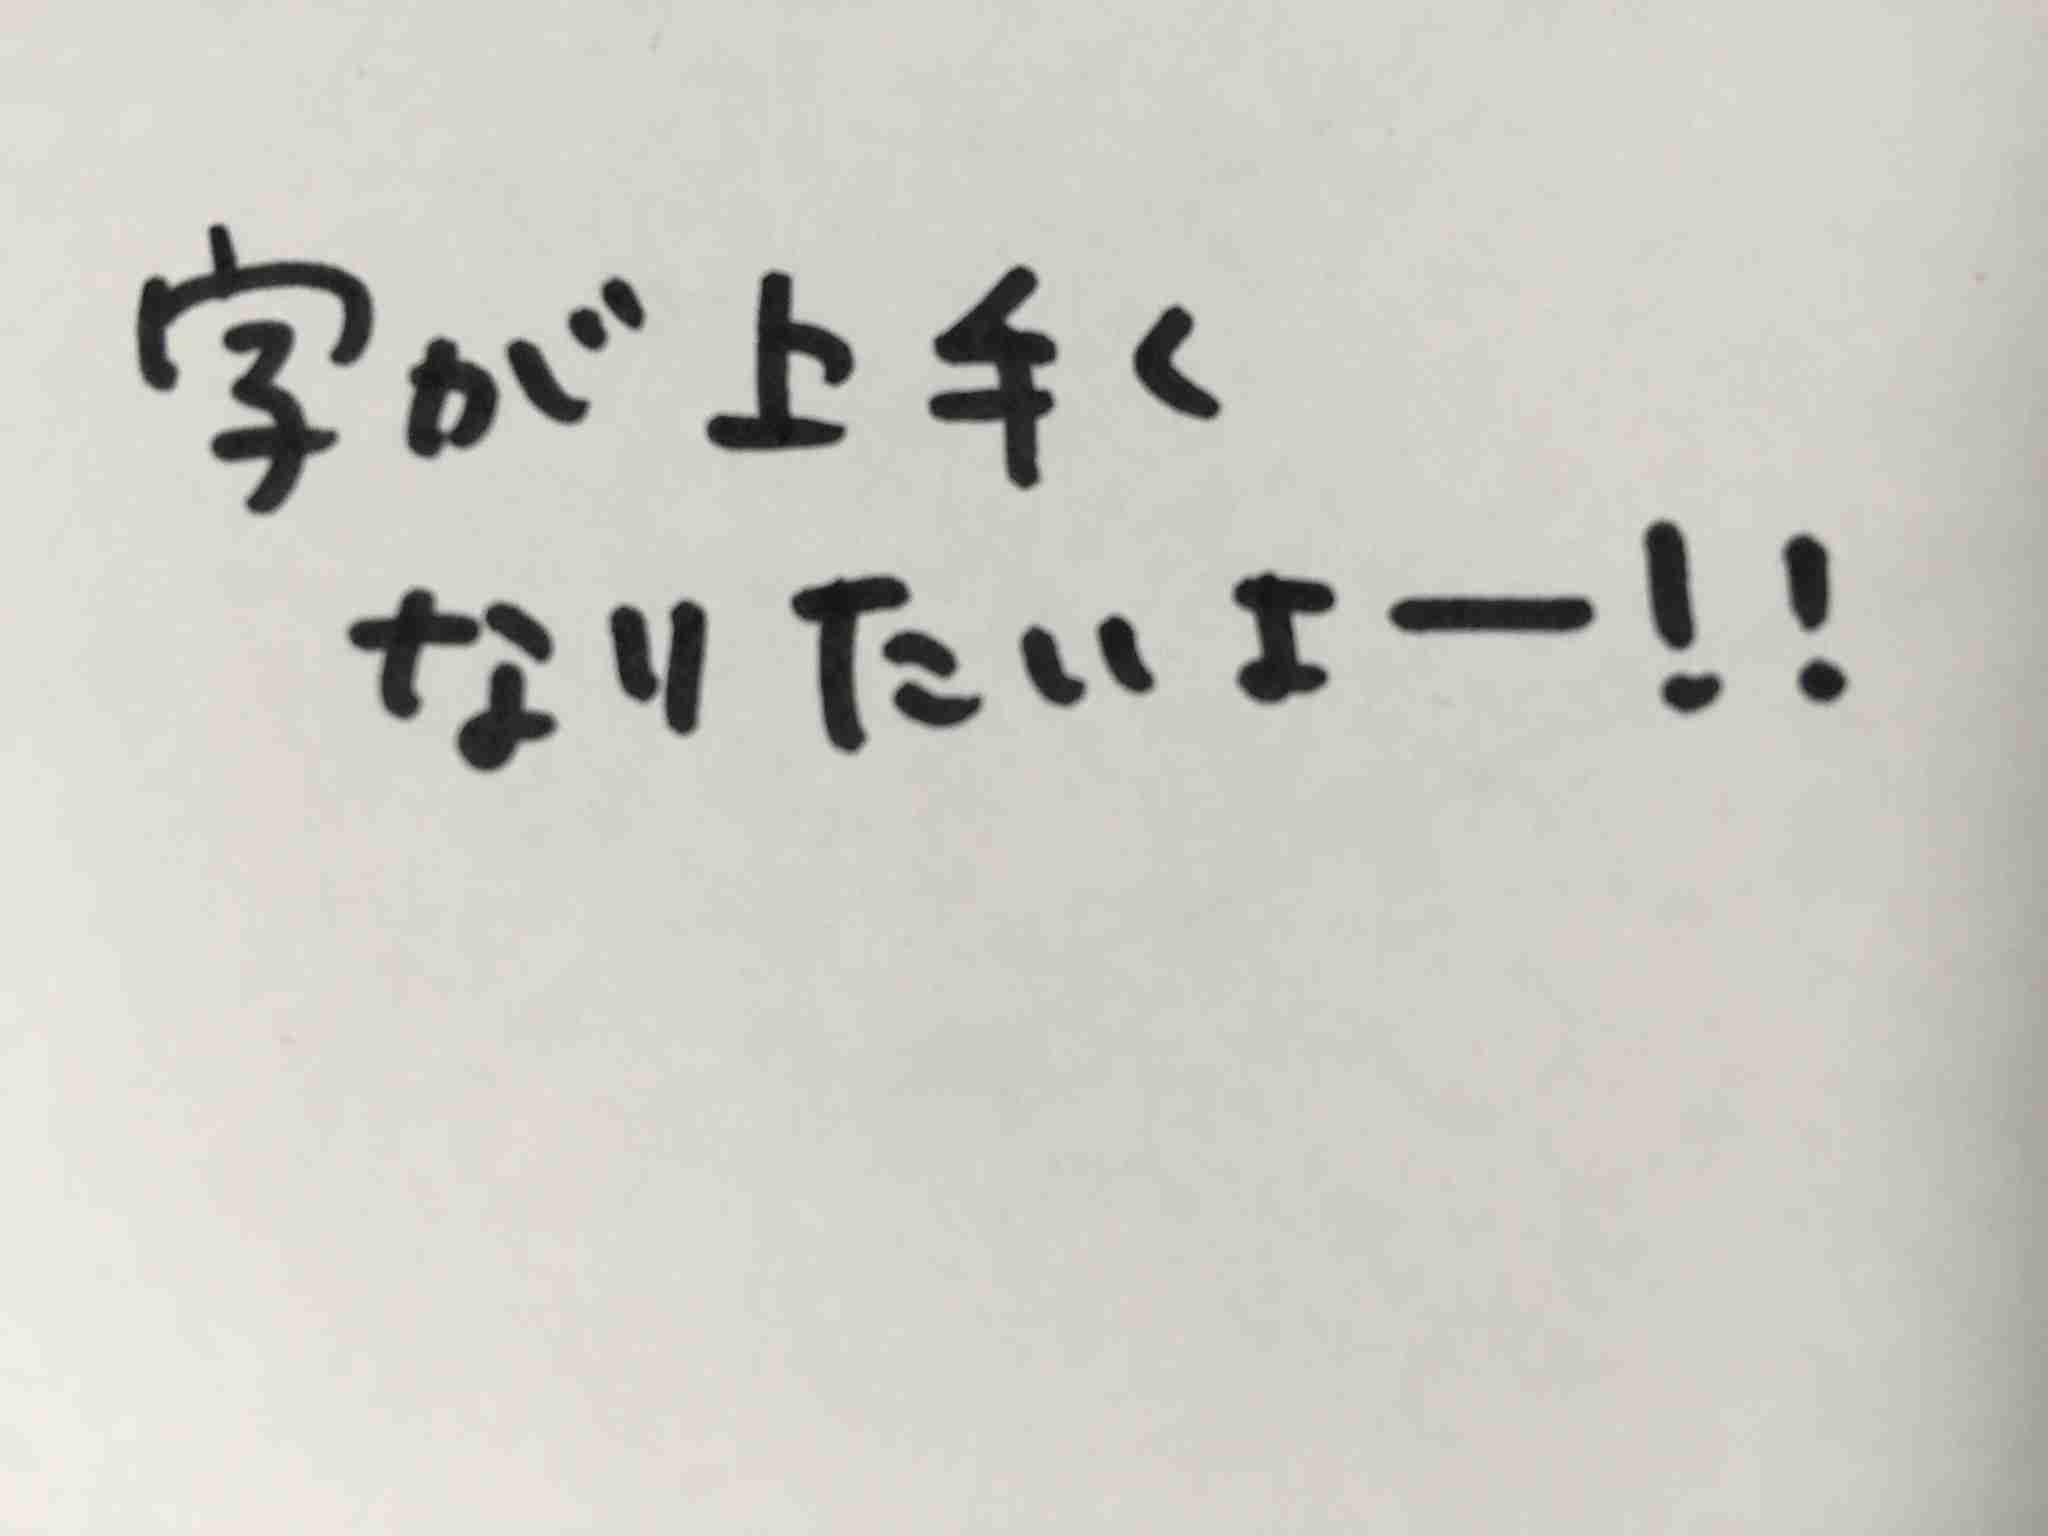 字が上手く
なりたいよー!!